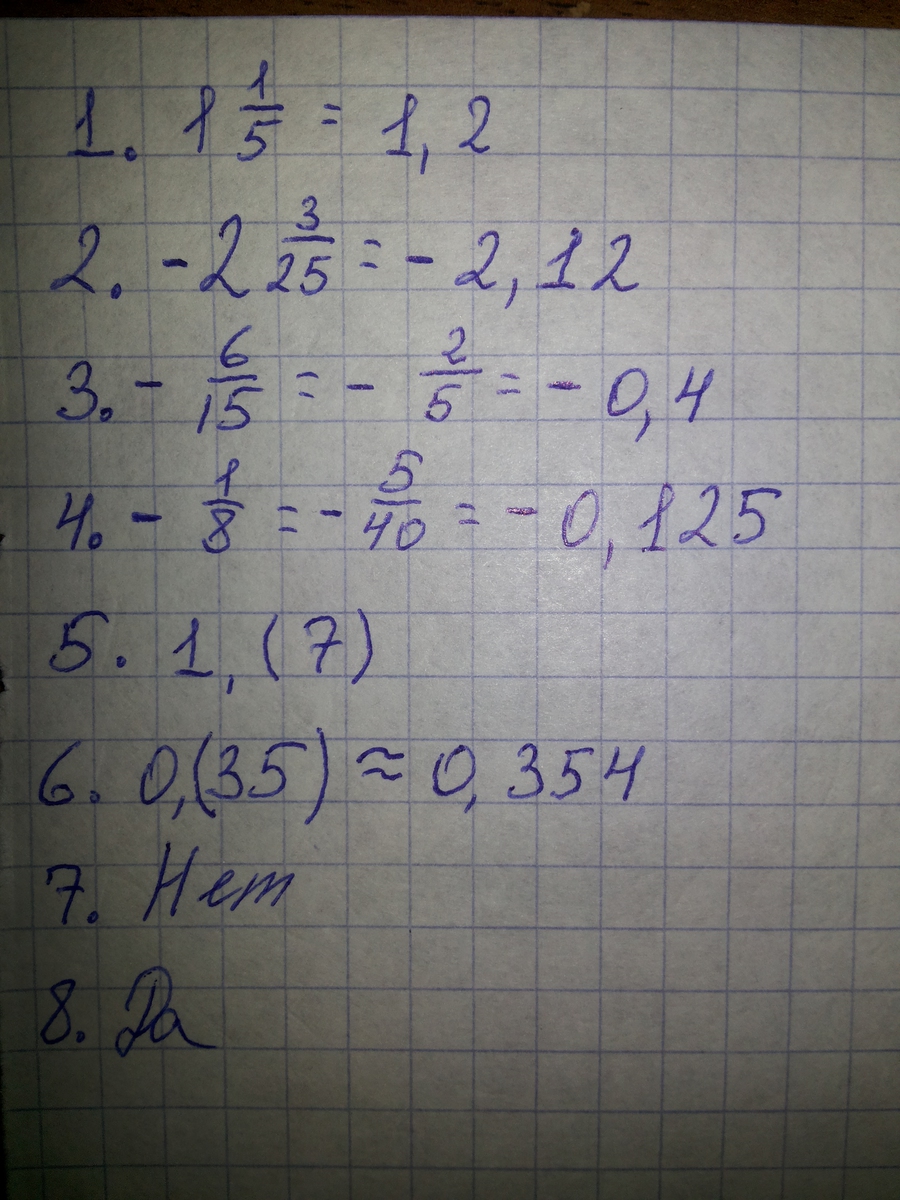 1. 1 1/5 = 1,2
2. - 2 3/25 = - 2,12
3. - 6/15 = - 2/5 = - 0,4
4. - 1/8 = - 5/40 = - 0,125
5. 1,(7)
6. 0,(35) ≈ 0,354
7. Нет
8. Да